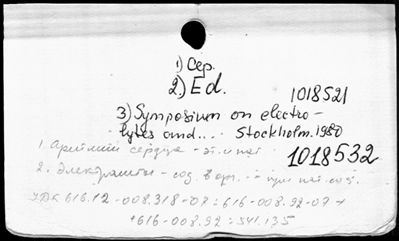 1) Сер.
2) Ed.
1018521
3) Symposium on electro-
lytes and... Stockholm. 1980
1018532
1. Аритмии сердца - эт. и пат.
2. Электролиты - сод. в орг. - при пат. сост.
УДК 616.12-008.318-02:616-008.92-07+
+616-008.92:541.135